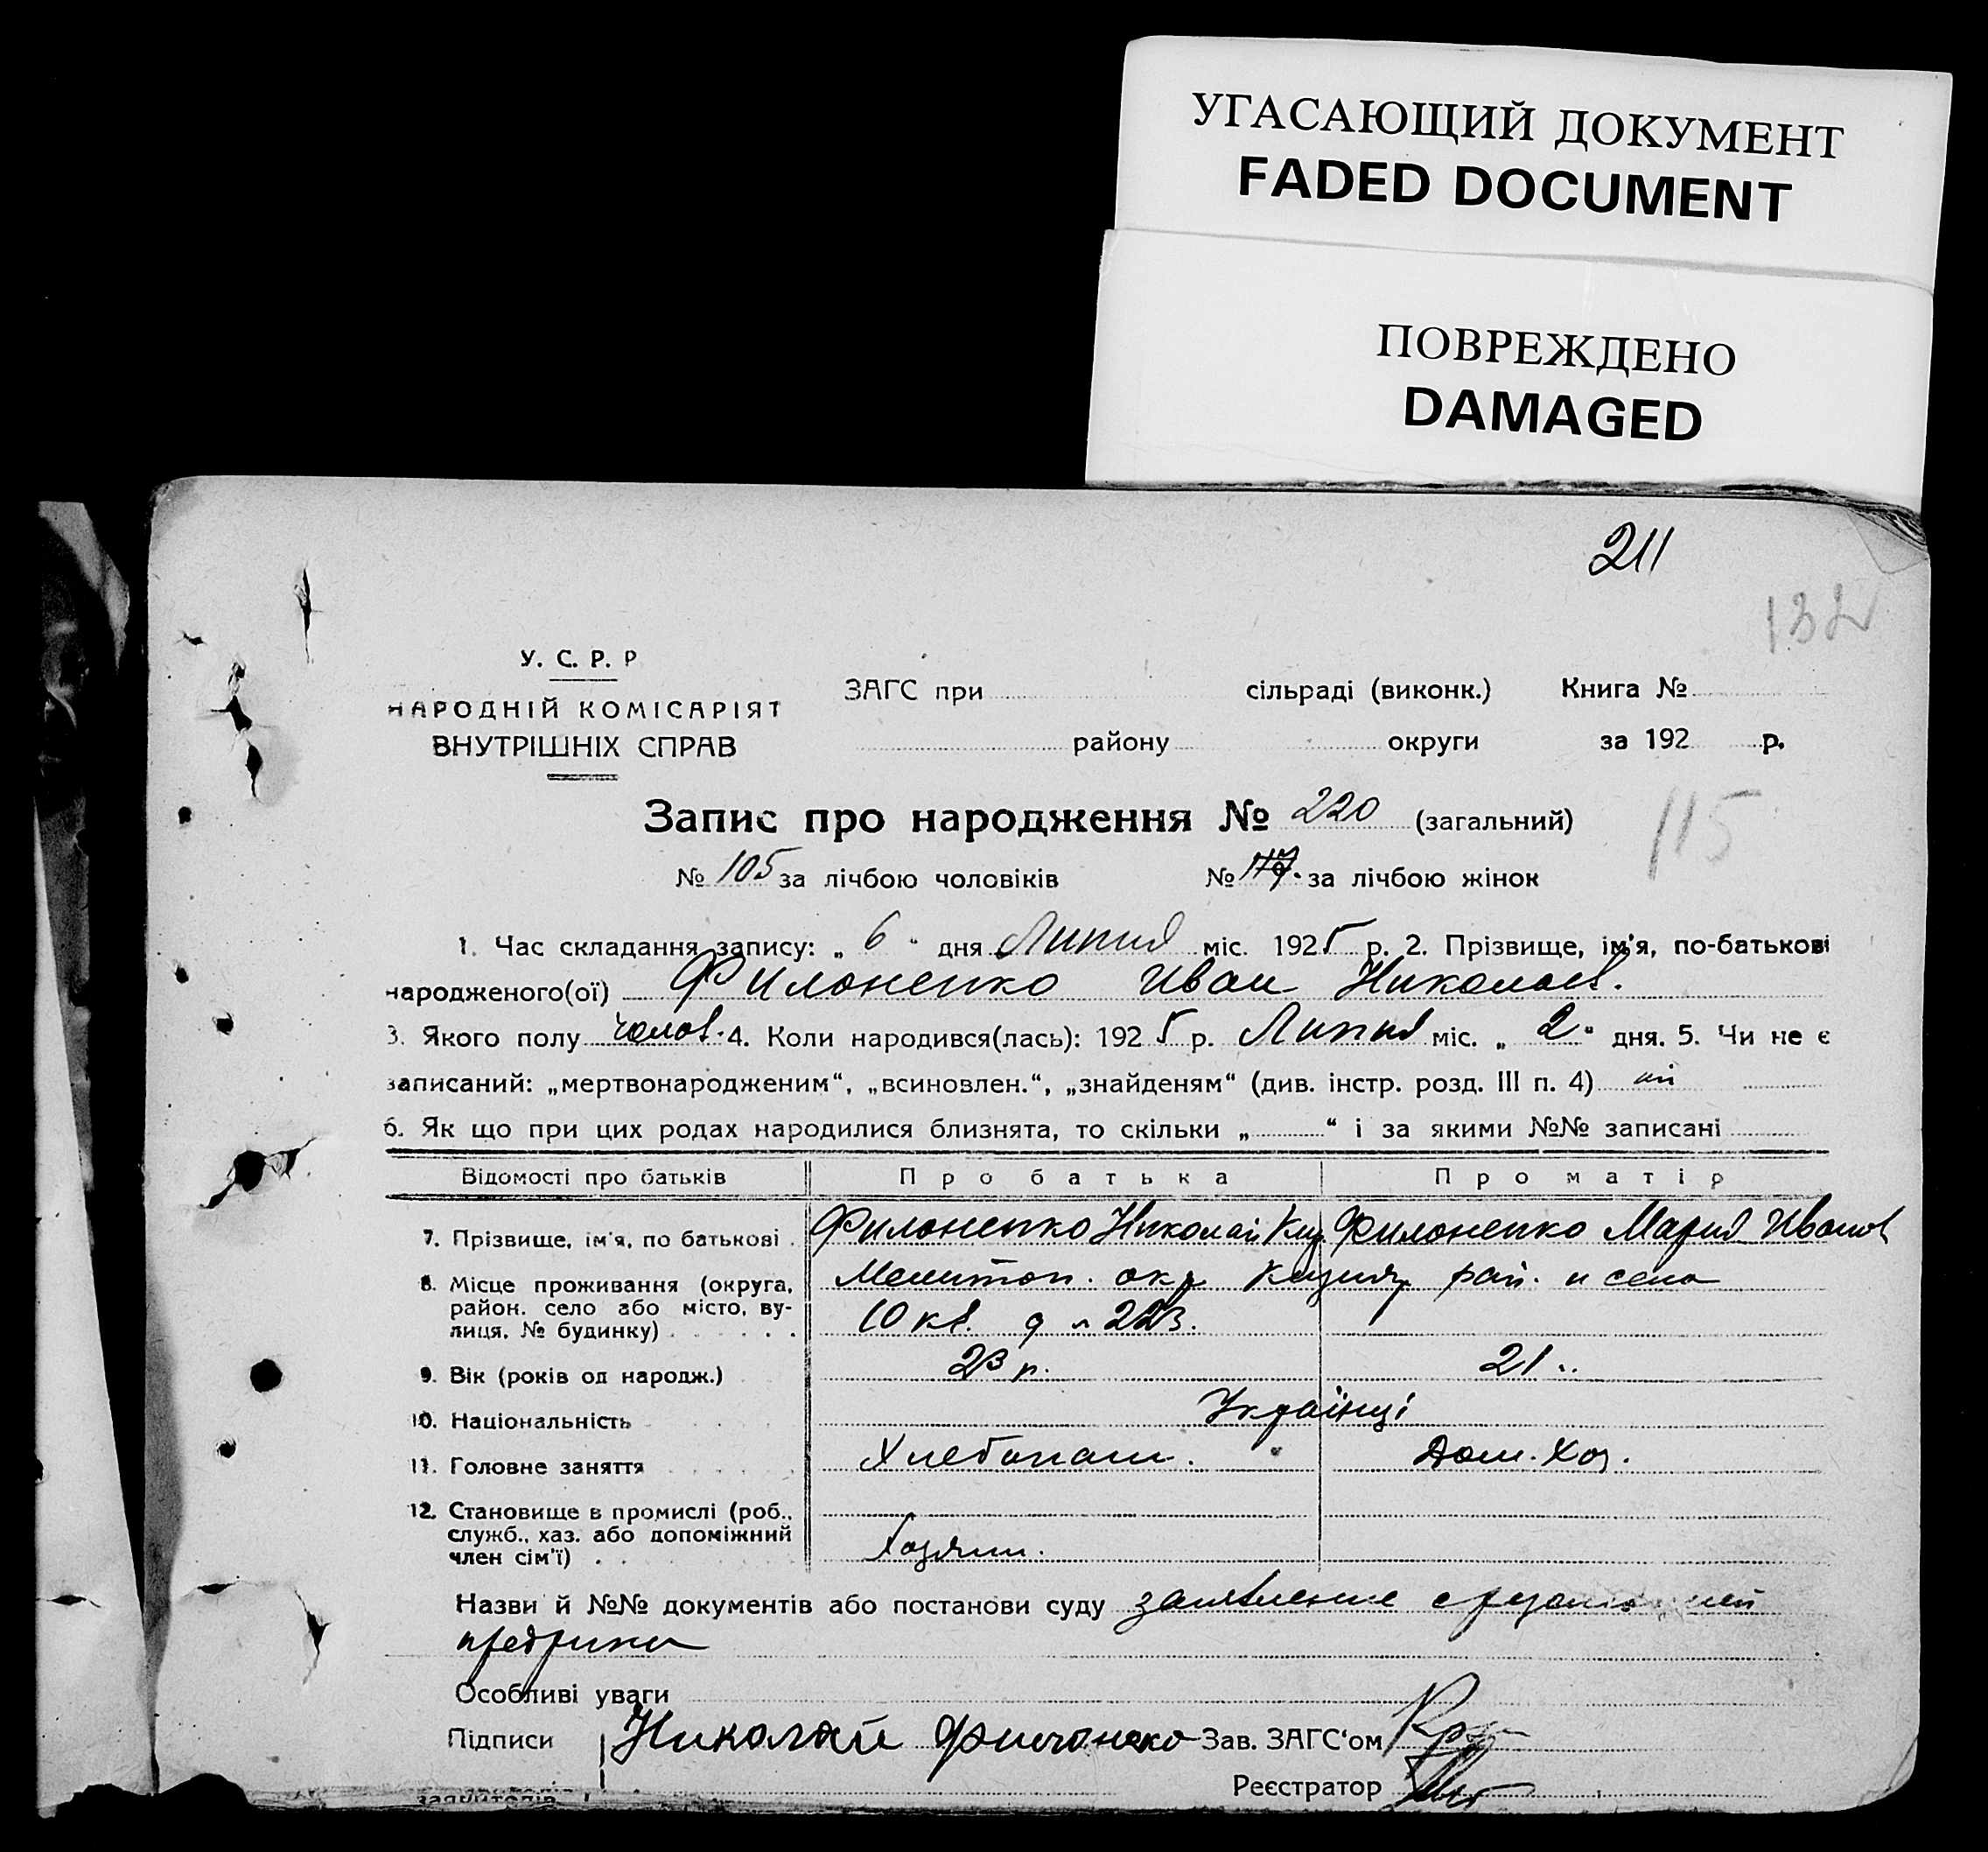 УГАСАЮЩИЙ ДОКУМЕНТ
FADED DOCUMENT
ПОВРЕЖДЕНО
DAMAGED
211
132
У. С. Р. Р
НАРОДНІЙ КОМІСАРІЯТ
ВНУТРІШНІХ СПРАВ
ЗАГС при сільраді (виконк.) Книга №
району округи за 192 р.
Запис про народження № 220 (загальний)
115
№ 105 за лічбою чоловіків № за лічбою жінок
1. Час складання запису: „ 6 " дня Липня міс. 1925 р. 2. Прізвище, ім'я, по-батькові
народженого(ої) Филоненко Иван Николаев.
3. Якого полу чолов. 4. Коли народився(лась): 1925 р. Липня міс. „ 2 " дня. 5. Чи не є
записаний: „мертвонародженим“, „всиновлен.“, „знайденям“ (див. інстр. розд. III п. 4) ні
6. Як що при цих родах народилися близнята, то скільки „ “ і за якими №№ записані
Відомості про батьків Про батька Про матір
7. Прізвище, ім'я, по батькові . Филоненко Николай Филоненко Мария Иванов
8. Місце проживання (округа, район. село або місто, вулиця, № будинку) Мелитоп. окр рай. и села
10 кв. 223.
9. Вік (років од народж.) 23 р. 21
10. Національність Українці
11. Головне заняття Хлебопаш. Дом. Хоз.
12. Становище в промислі (роб.,
служб., хаз. або допоміжний
член сім'ї) . Хозяин.
Назви й №№ документів або постанови суду заявление с
предрика
Особливі уваги
Підписи Николай Филонеко Зав. ЗАГС'ом
Реєстратор
заявителів